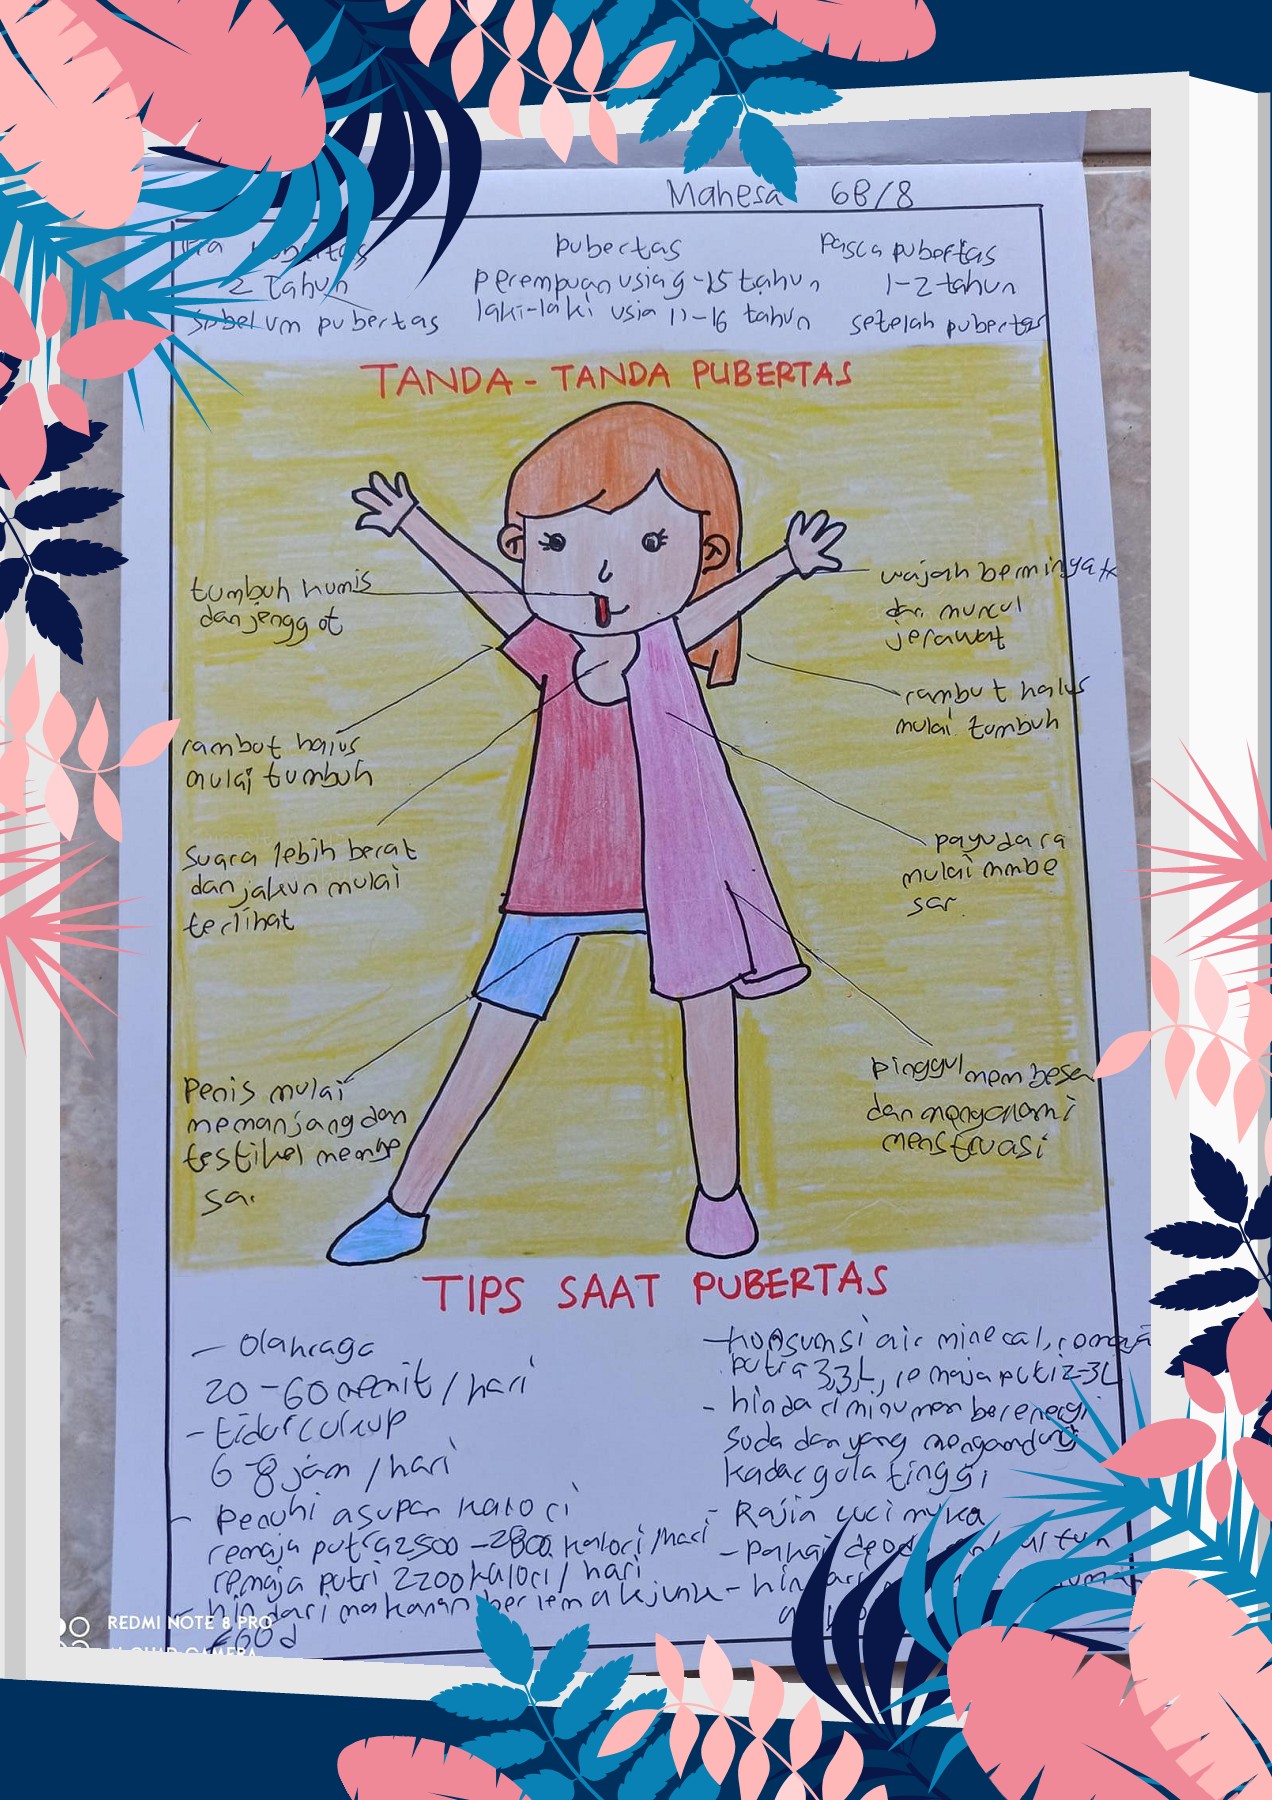 Mahesa 6B/8
pubertas
2 tahun
sebelum pubertas
pubertas
perempuan usia 9-15 tahun
laki-laki usia 11-16 tahun
Pasca pubertas
1-2 tahun
setelah pubertas
TANDA - TANDA PUBERTAS
tumbuh kumis
dan jenggot
rambut halus
mulai tumbuh
Suara lebih berat
dan jakun mulai
terlihat
Penis mulai
memanjang dan
testikel membe
sar
wajah berminyak
dan muncul
jerawat
rambut halus
mulai tumbuh
payudara
mulai mmbe
sar
pinggul membesar
dan mengalami
menstruasi
TIPS SAAT PUBERTAS
- Olahraga
20-60 menit / hari
- tidur cukup
6-8 jam / hari
- Penuhi asupan kalori
remaja putra 2500 - 2800 kalori / hari
remaja putri 2200 kalori / hari
- hindari makanan berlemak junk
food
- konsumsi air mineral, remaja
putra 3,3L, remaja putri 2-3L
- hindari minuman berenergi
Soda dan yang mengandung
kadar gola tinggi
- Rajin cuci muka
- Pakai
REDMI NOTE 8 PRO